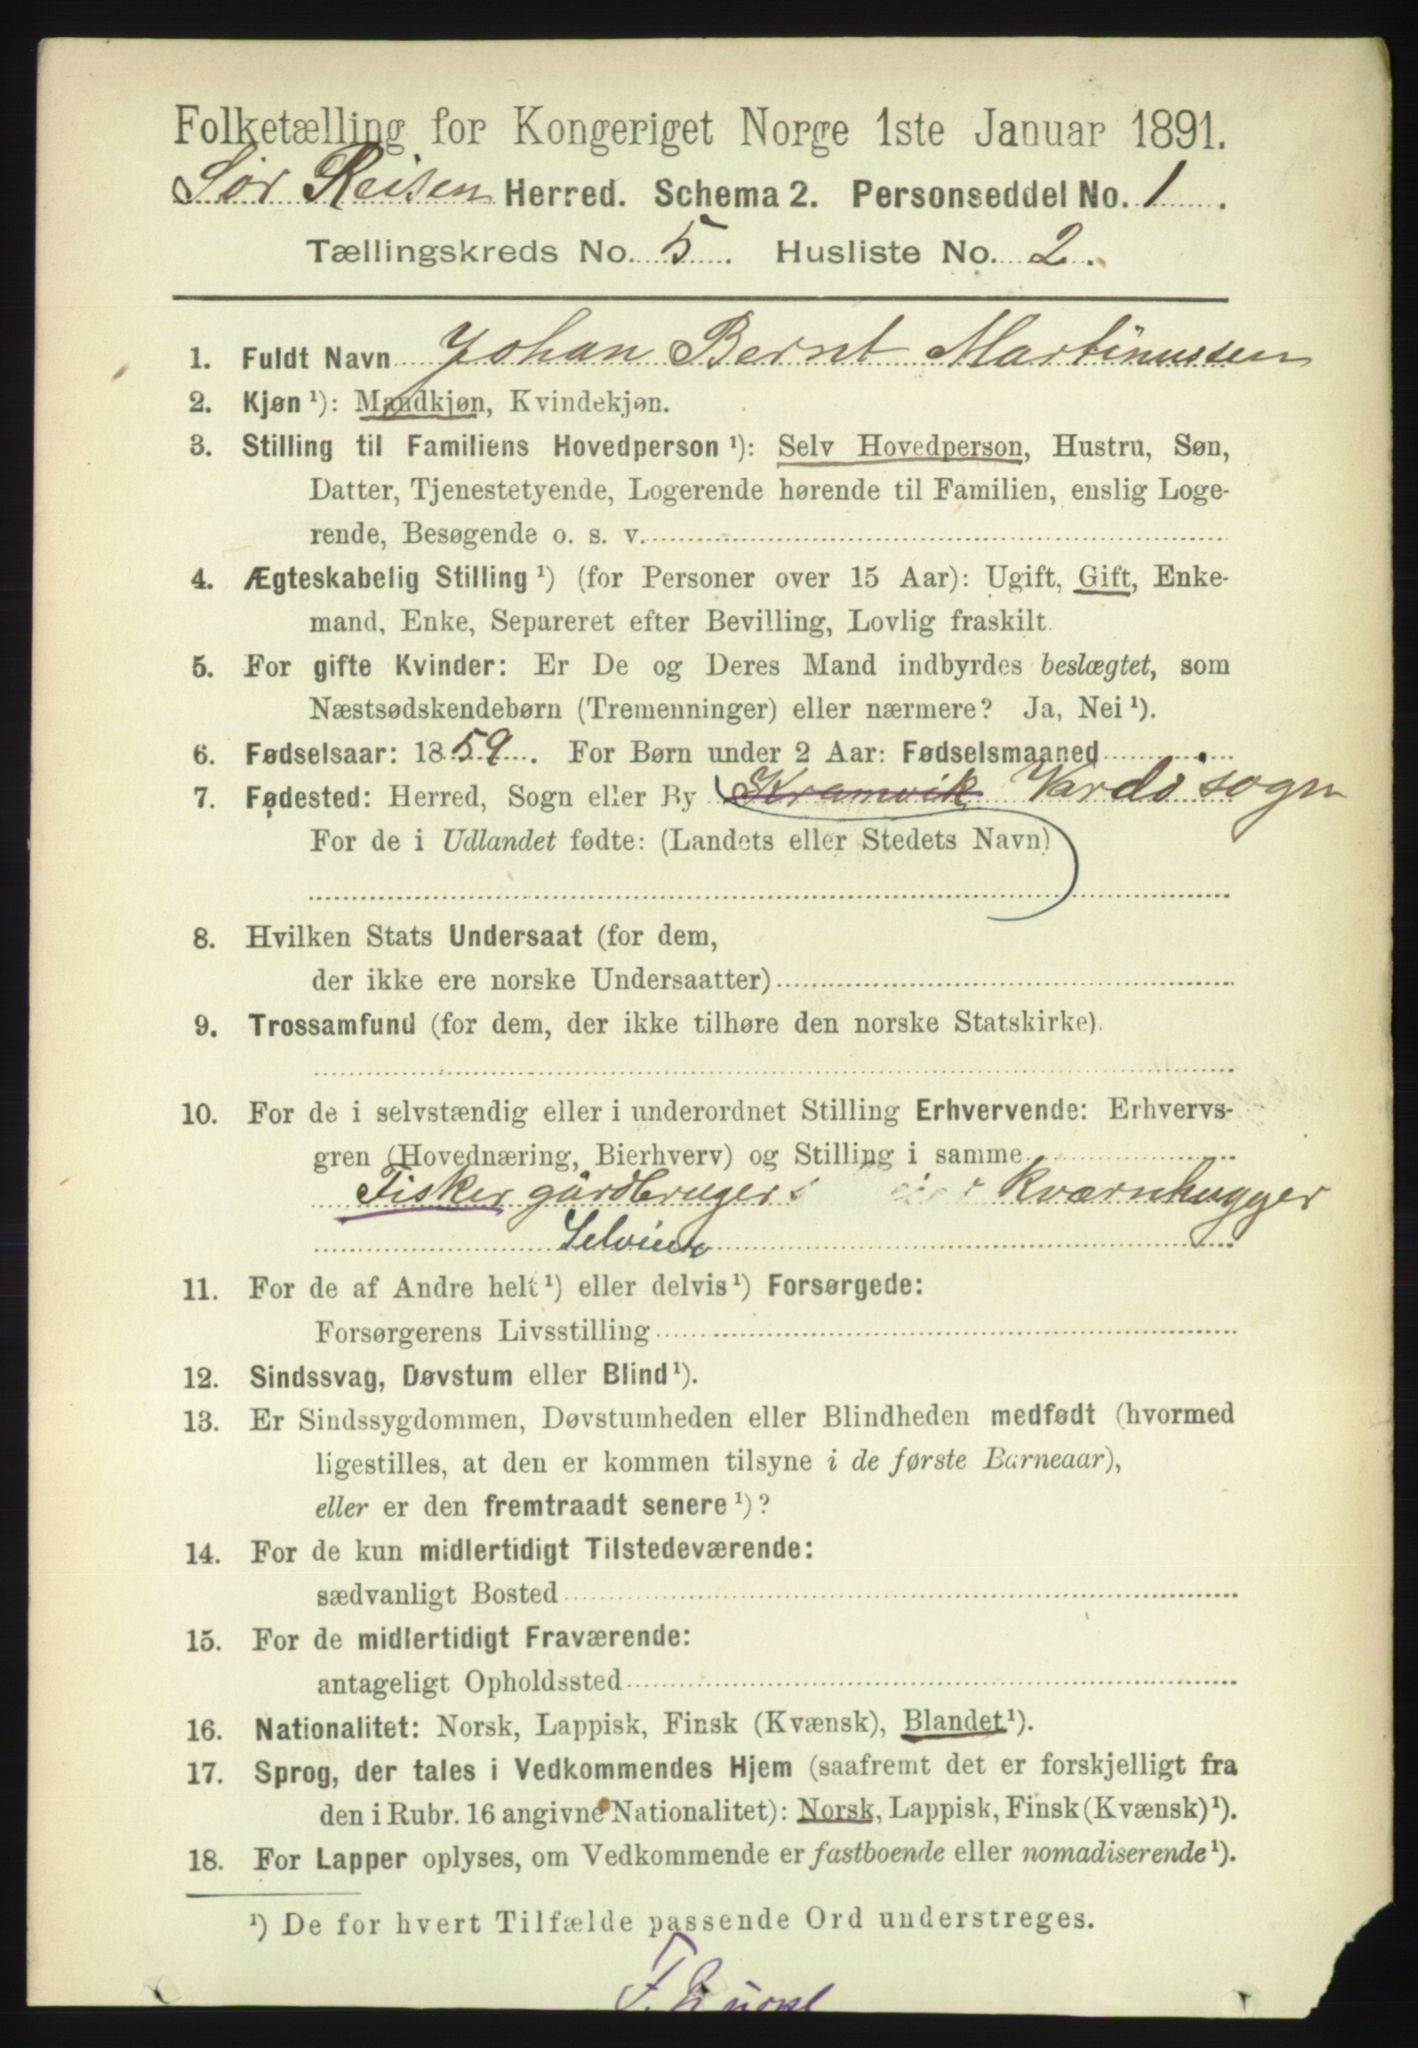 Folketælling for Kongeriget Norge 1ste Januar 1891.
Sør Reisen Herred. Schema 2. Personseddel No. 1.
Tællingskreds No. 5. Husliste No. 2.
1. Fuldt Navn Johan Bernt Martinussen
2. Kjøn ¹): Mandkjøn, Kvindekjøn.
3. Stilling til Familiens Hovedperson ¹): Selv Hovedperson, Hustru, Søn,
Datter, Tjenestetyende, Logerende hørende til Familien, enslig Loge-
rende, Besøgende o. s. v.
4. Ægteskabelig Stilling ¹) (for Personer over 15 Aar): Ugift, Gift, Enke-
mand, Enke, Separeret efter Bevilling, Lovlig fraskilt.
5. For gifte Kvinder: Er De og Deres Mand indbyrdes beslægtet, som
Næstsødskendebørn (Tremenninger) eller nærmere? Ja, Nei ¹).
6. Fødselsaar: 1859. For Børn under 2 Aar: Fødselsmaaned
7. Fødested: Herred, Sogn eller By Kramvik Vardø sogn
For de i Udlandet fødte: (Landets eller Stedets Navn)
8. Hvilken Stats Undersaat (for dem,
der ikke ere norske Undersaatter)
9. Trossamfund (for dem, der ikke tilhøre den norske Statskirke).
10. For de i selvstændig eller i underordnet Stilling Erhvervende: Erhvervs-
gren (Hovednæring, Bierhverv) og Stilling i samme
Fisker gårdbruger kværnhugger
11. For de af Andre helt ¹) eller delvis ¹) Forsørgede:
Forsørgerens Livsstilling
12. Sindssvag, Døvstum eller Blind ¹).
13. Er Sindssygdommen, Døvstumheden eller Blindheden medfødt (hvormed
ligestilles, at den er kommen tilsyne i de første Barneaar),
eller er den fremtraadt senere ¹)?
14. For de kun midlertidigt Tilstedeværende:
sædvanligt Bosted
15. For de midlertidigt Fraværende:
antageligt Opholdssted
16. Nationalitet: Norsk, Lappisk, Finsk (Kvænsk), Blandet ¹).
17. Sprog, der tales i Vedkommendes Hjem (saafremt det er forskjelligt fra
den i Rubr. 16 angivne Nationalitet): Norsk, Lappisk, Finsk (Kvænsk) ¹).
18. For Lapper oplyses, om Vedkommende er fastboende eller nomadiserende ¹).
¹) De for hvert Tilfælde passende Ord understreges.